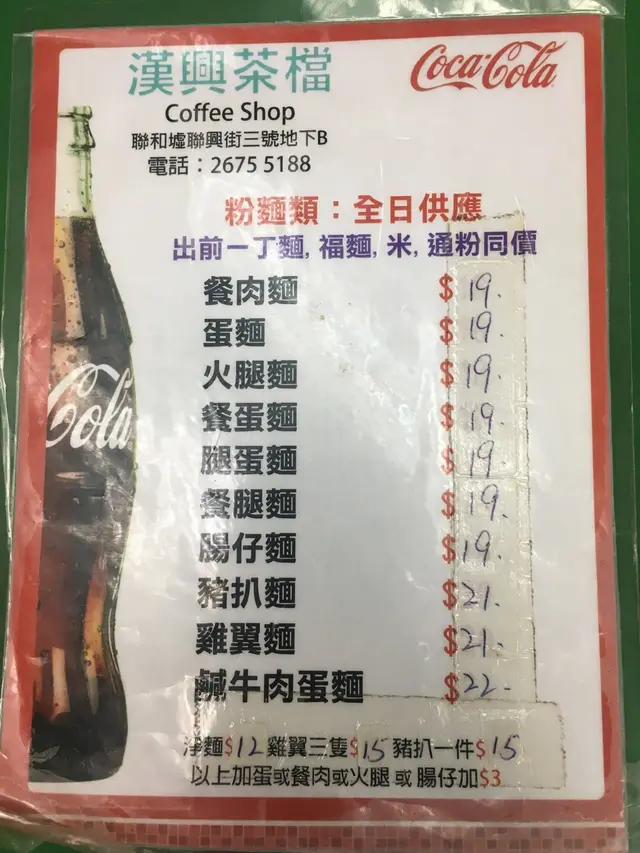 漢興茶檔
Coca-Cola
Coffee Shop
聯和墟聯興街三號地下B
電話：2675 5188
粉麵類：全日供應
出前一丁麵, 福麵, 米, 通粉同價
餐肉麵 $19.
蛋麵 $19.
火腿麵 $19.
餐蛋麵 $19.
腿蛋麵 $19.
餐腿麵 $19.
腸仔麵 $19.
豬扒麵 $21.
雞翼麵 $21.
鹹牛肉蛋麵 $22-
淨麵$12 雞翼三隻$15 豬扒一件$15
以上加蛋或餐肉或火腿 或 腸仔加$3
Cola